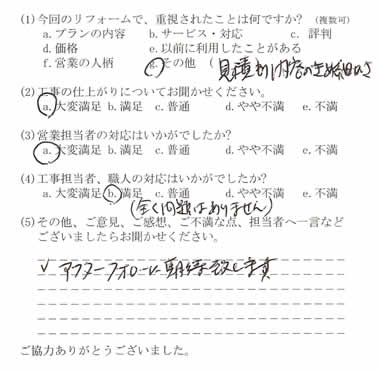 (1) 今回のリフォームで、重視されたことは何ですか? (複数可)
a. プランの内容 b. サービス・対応 c. 評判
d. 価格 e. 以前に利用したことがある
f. 営業の人柄 g. その他 (見積り内容のきめ細かさ
(2) 工事の仕上がりについてお聞かせください。
a. 大変満足 b. 満足 c. 普通 d. やや不満 e. 不満
(3) 営業担当者の対応はいかがでしたか?
a. 大変満足 b. 満足 c. 普通 d. やや不満 e. 不満
(4) 工事担当者、職人の対応はいかがでしたか?
a. 大変満足 b. 満足 c. 普通 d. やや不満 e. 不満
(全く問題はありません)
(5) その他、ご意見、ご感想、ご不満な点、担当者へ一言など
ございましたらお聞かせください。
✓ アフターフォローに期待致します
ご協力ありがとうございました。